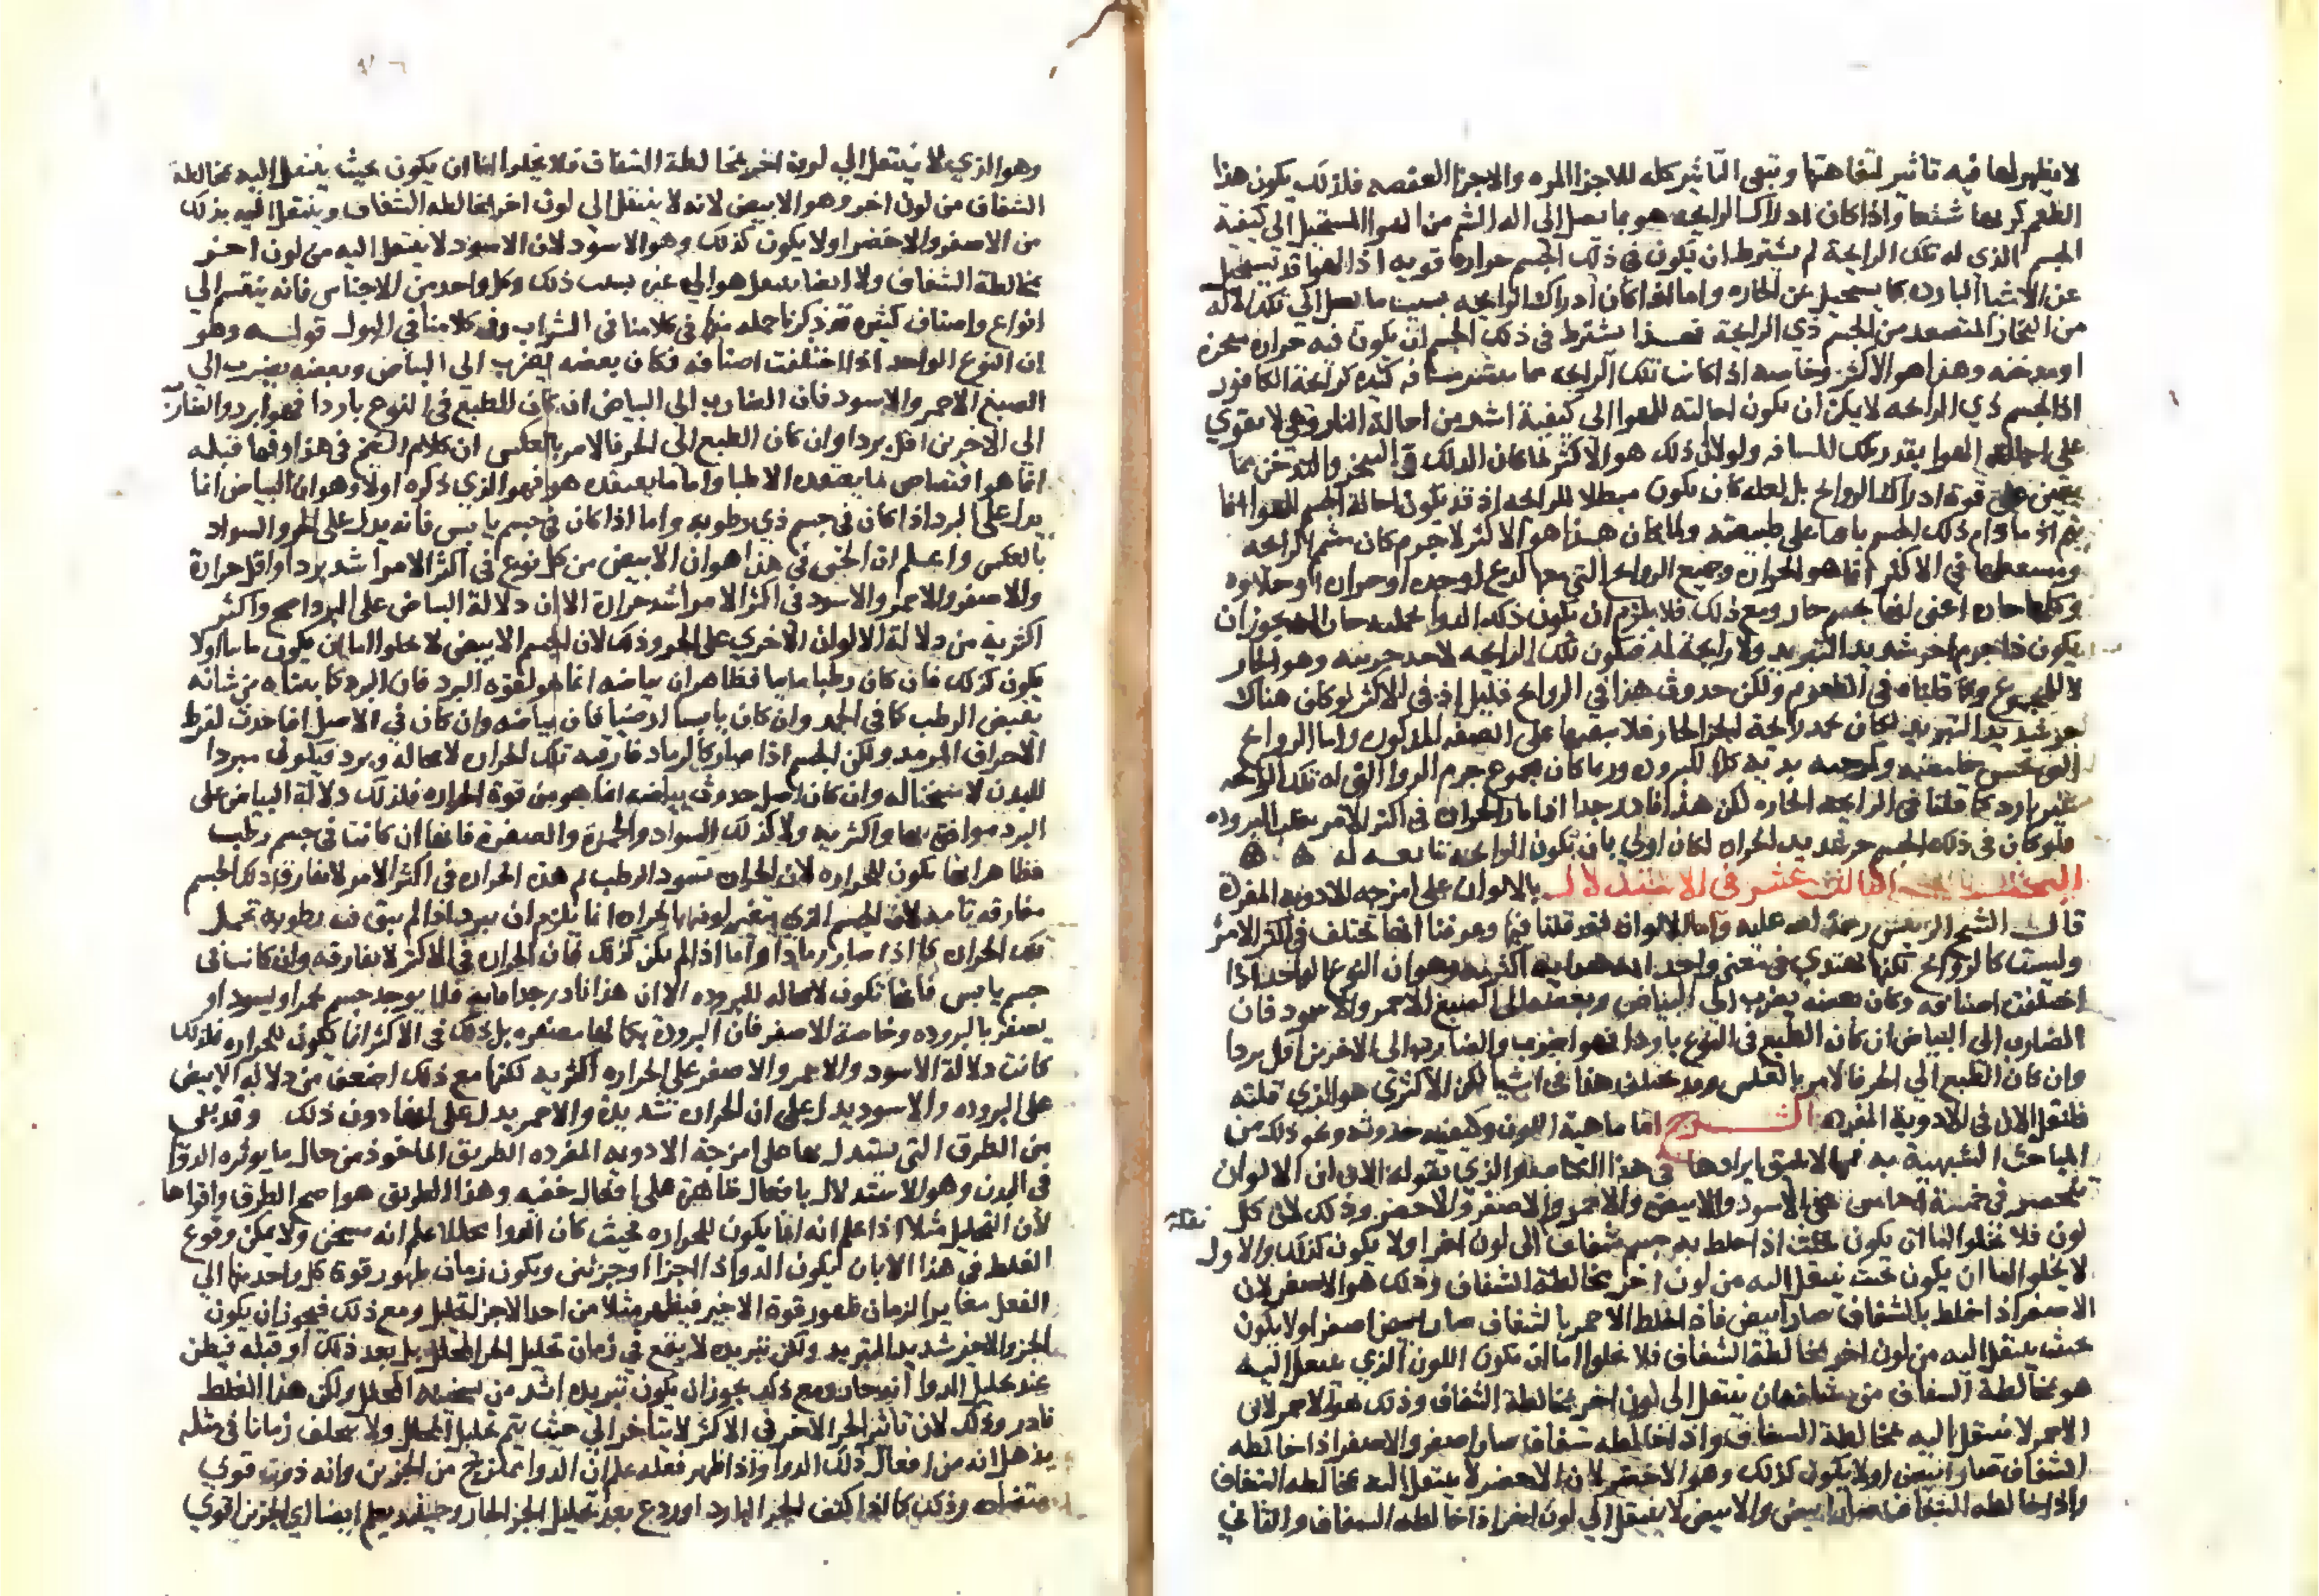 لا يظهر لها فيه تاثير لتفاهتها وتبقى التاثير كله للاجزا المره والاجزا العفصه فلذلك يكون هذا
الطعم كريها شنعا واذا كان ادراك الرايحه هو بما يصل الى اله الشم من الهوا المستحيل الى كيفية
الجسم الذي له تلك الرايحة لم يشترط ان يكون في ذلك الجسم حراره قويه اذ الهوا قد يستحيل
عن الاشيا البارده كما يستحيل عن الحاره واما اذا كان ادراك الرايحه بسبب ما يصل الى تلك الاله
من البخار المتصعد من الجسم ذي الرايحة فهذا يشترط في ذلك الجسم ان يكون فيه حراره مبخره
او مدخنه وهذا هو الاكثر وخاصه اذا كانت تلك الرايحه مما يشتم من مسافه كثيره كرايحة الكافور
اذ الجسم ذي الرايحه لا يمكن ان يكون احالته للهوا الى كيفية اشد من احالة النار وهي لا تقوي
على احالة الهوا بقدر تلك المسافه ولولا ان ذلك هو الاكثر لما كان الدلك والتسخين والتدخين مما
يعين على قوة ادراك الروايح بل لعله كان يكون مبطلا للرايحه اذ قد يكون احالة الجسم للهوا انما
يتم اذ ما دام ذلك الجسم باقيا على طبيعته ولما كان هذا هو الاكثر لا جرم كان مشم الرايحه
ومسعطها في الاكثر انما هو الحراره وجميع الروايح التي معها لذع او حده او حراره او حلاوه
وكلها حاره اعني انها بجسم حار ومع ذلك فلا يلزم ان يكون ذلك الدوا بجملته حارا اذ يجوز ان
يكون ذا جرم اخر شديد التبريد ولا رايحة له فيكون تلك الرايحه لاحد جزئيه وهو الحار
لا للمجموع وكما قلناه في الطعوم ولكن حدوث هذا في الروايح قليل اذ في الاكثر لو كان هناك
جزء شديد التبريد لكان يخمد رايحة الجزء الحار فلا يبقيها على الصفه المذكوره واما الروايح
التي تحس حامضيه وكرجيه ندية كلها للبروده وربما كان مجموع جرم الدوا الذي له تلك الرايحه
غير بارد كما قلنا في الرايحه الحاره لكن هذا نادر جدا اذ الحراره في اكثر الامر تغلب البروده
فلو كان في ذلك الجسم جزء شديد الحراره لكان اولى بان تكون الرايحه تابعه له
البحث الثالث عشر في الاستدلال بالالوان على امزجه الادويه المفردة
قال الشيخ الرييس رحمة الله عليه واما الالوان فقد قلنا فيها وعرفنا انها تختلف في اكثر الامر
وليست كالروايح لكنها تهتدي في معنى واحد الى هدايه اكثريه وهو ان النوع الواحد اذا
اختلفت اصنافه وكان بعضه يضرب الى البياض وبعضه الى الصبغ الاحمر والاسود فان
الضارب الى البياض ان كان الطبع في النوع باردا فهو ابرد والضارب الى الاخرين اقل بردا
وان كان الطبع الي الحر فالامر بالعكس وقد يختلف هذا في اشيا لكن الاكثري هو الذي قلته
فلنقل الان في الادوية المفرده الشرح اما ماهية اللون وكيفيه حدوثه ونحو ذلك من
المباحث الشبيهة به فمما لا يليق ايرادها في هذا الكتاب والذي نقوله الان ان الالوان
تنحصر في خمسة اجناس هي الاسود والابيض والاحمر والاصفر والاخضر وذلك لان كل
لون فلا يخلوا اما ان يكون بحيث اذا خلط به جسم شفاف الى لون اخر او لا يكون كذلك والاول
لا يخلوا اما ان يكون بحيث ينتقل اليه من لون اخر بمخالطة الشفاف وذلك هو الاصفر لان
الاصفر اذا خلط بالشفاف صار ابيض فاذا خلط الاحمر بالشفاف صار اصفر او لا يكون
بحيث ينتقل اليه من لون اخر بمخالطة الشفاف فلا يخلوا اما ان يكون اللون الذي ينتقل اليه
هو بمخالطة الشفاف من شانه ان ينتقل الى لون اخر بمخالطة الشفاف وذلك هو الاحمر لان
الاحمر لا ينتقل اليه بمخالطة الشفاف واذا خالطه شفاف صار اصفر والاصفر اذا خالطه
الشفاف صار ابيض او لا يكون كذلك وهو الاخضر لان الاخضر لا ينتقل اليه بمخالطه الشفاف
واذا خالطه الشفاف صار ابيض والابيض لا ينتقل الي لون اخر اذا خالطه الشفاف والثاني
وهو الذي لا ينتقل الي لون اخر بمخالطة الشفاف فلا يخلوا اما ان يكون بحيث ينتقل اليه بمخالطة
الشفاف من لون اخر وهو الابيض لانه لا ينتقل الى لون اخر بمخالطه الشفاف وينتقل اليه بذلك
من الاصفر والاخضر او لا يكون كذلك وهو الاسود لان الاسود لا ينتقل اليه من لون اخر
بمخالطة الشفاف ولا ايضا ينتقل هو الي غيره بسبب ذلك وكل واحد من الاجناس فانه ينقسم الي
انواع واصناف كثيره قد ذكرنا جمله منها في كلامنا في الشراب وفي كلامنا في البول قوله وهو
ان النوع الواحد اذا اختلفت اصنافه فكان بعضه يضرب الى البياض وبعضه يضرب الي
الصبغ الاحمر والاسود فان الضارب الى البياض ان كان الطبع في النوع باردا فهو ابرد والضارب
الى الاخرين اقل بردا وان كان الطبع الى الحر فالامر بالعكس ان كلام الشيخ في هذا وفيما قبله
انما هو اقتصاص ما يعتقده الاطبا واما ما يعتقده هو فهو الذي ذكره اولا وهو ان البياض انما
يدل على البرد اذا كان في جسم ذي رطوبه واما اذا كان في جسم يابس فانه يدل على الحر والسواد
بالعكس واعلم ان الحق في هذا هو ان الابيض من كل نوع في اكثر الامر اشد بردا واقل حرارة
والاصفر والاحمر والاسود في اكثر الامر اشد حرارة الا ان دلالة البياض على البرد اصح واكثر
اكثرية من دلالة الالوان الاخري على الحر وذلك لان الجسم الابيض لا يخلوا اما ان يكون مايا او لا
يكون كذلك فان كان رطبا مايا فظاهر ان بياضه انما هو لقوه البرد فان البرد كما بيناه من شانه
تبييض الرطب كما في الجمد وان كان يابسا ارضيا فان بياضه وان كان في الاصل انما حدث لفرط
الاحراق المرمد ولكن الجسم اذا صار كالرماد فارقته تلك الحراره لا محاله وبرد فيكون مبردا
للبدن لا مسخنا له وان كان اصل حدوث بياضه انما هو من قوة الحراره فلذلك دلالة البياض على
البرد موافق بها واكثريه ولا كذلك السواد والحمرة والصفرة فانها ان كانت في جسم رطب
فظاهر انها تكون للحراره لان الحراره تسود الرطب ثم هذه الحراره في اكثر الامر لا تفارق ذلك الجسم
مفارقه تامه لان الجسم الذي يتغير لونه بالحراره انما يلزم ان يبرد اذا لم يبق فيه رطوبه تحمل
تلك الحراره كما اذا صار رمادا واما اذا لم يكن كذلك فان الحراره في الاكثر لا تفارقه وان كانت في
جسم يابس فانها تكون لا محاله للبروده الا ان هذا نادر جدا فانه قلما يوجد جسم يحمر او يسود او
يصفر بالبروده وخاصة الاصفر فان البرودة يكاد لا تصفره بل ذلك في الاكثر انما يكون للحراره فلذلك
كانت دلالة الاسود والاحمر والاصفر على الحراره اكثريه لكنها مع ذلك اضعف من دلاله الابيض
على البروده والاسود يدل على ان الحراره شديدة والاحمر يدل على انها دون ذلك وقد بقي
من الطرق التي يستدل بها على امزجة الادويه المفرده الطريق الماخوذ من حال ما يوثره الدوا
في البدن وهو الاستدلال بافعال ظاهرة على افعال خفيه وهذا الطريق هو اصح الطرق واقواها
لان التحليل مثلا اذا علم انه انما يكون للحراره فحيث كان الدوا محللا علم انه مسخن ولا يمكن وقوع
الغلط في هذا الا بان يكون الدوا ذا اجزا او جزئين ويكون زمان ظهور قوة كل واحد منها الي
الفعل مغاير الزمان ظهور قوة الاخير فيظهر مثلا من احد الاجزا تحليل ومع ذلك فيجوز ان يكون
الجزو الاخير شديد التبريد ولكن تبريده لا يقع في زمان تحليل الحار المحلل بل بعد ذلك او قبله فيظن
عند تحليل الدوا انه حار ومع ذلك يجوز ان يكون تبريده اشد من تسخينه المحلل ولكن هذا الغلط
نادر وذلك لان تاثير الجزء الاخر في الاكثر لا يتاخر الي حيث يتم تحليل المحلل ولا يتخلف زمانا في مثله
يذهل انه من افعال ذلك الدوا واذا ظهر فعله علم ان الدوا ممتزج من الجزئين وانه ذو قوي
متضاده وذلك كما اذا كثف الجزء البارد او ردع بعد تحليل الجزء الحار وحينئذ يعلم ايضا اي الجزئين اقوي